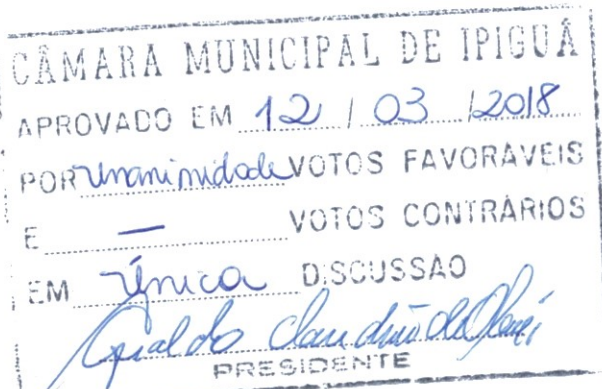 CÂMARA MUNICIPAL DE IPIGUÁ
APROVADO EM 12 / 03 / 2018
POR Unanimidade VOTOS FAVORÁVEIS
E — VOTOS CONTRÁRIOS
EM Única DISCUSSÃO
PRESIDENTE